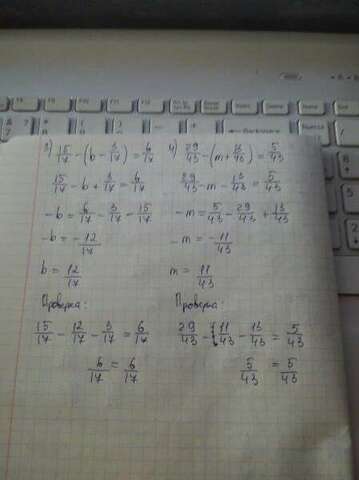 ← Backspace
3) 15/17 - (b - 3/17) = 6/17
15/17 - b + 3/17 = 6/17
-b = 6/17 - 3/17 - 15/17
-b = -12/17
b = 12/17
Проверка:
15/17 - 12/17 - 3/17 = 6/17
6/17 = 6/17
4) 29/43 - (m + 13/43) = 5/43
29/43 - m - 13/43 = 5/43
-m = 5/43 - 29/43 + 13/43
-m = -11/43
m = 11/43
Проверка:
29/43 - 11/43 - 13/43 = 5/43
5/43 = 5/43